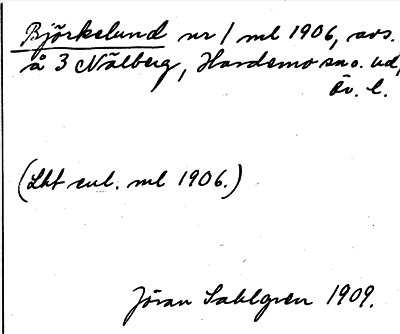 Björkelund nr 1 ml 1906, avs.
å 3 Nälberg, Hardemo sn o. ud,
Ör. l.
(Lht enl. ml 1906.)
Jöran Sahlgren 1909.